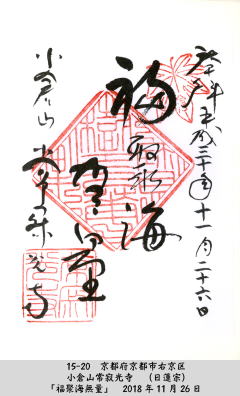 奉拝 平成三十年十一月二十六日
福聚海
無量
小倉山 常寂光寺
15-20 京都府京都市右京区
小倉山常寂光寺 （日蓮宗）
「福聚海無量」 2018年11月26日